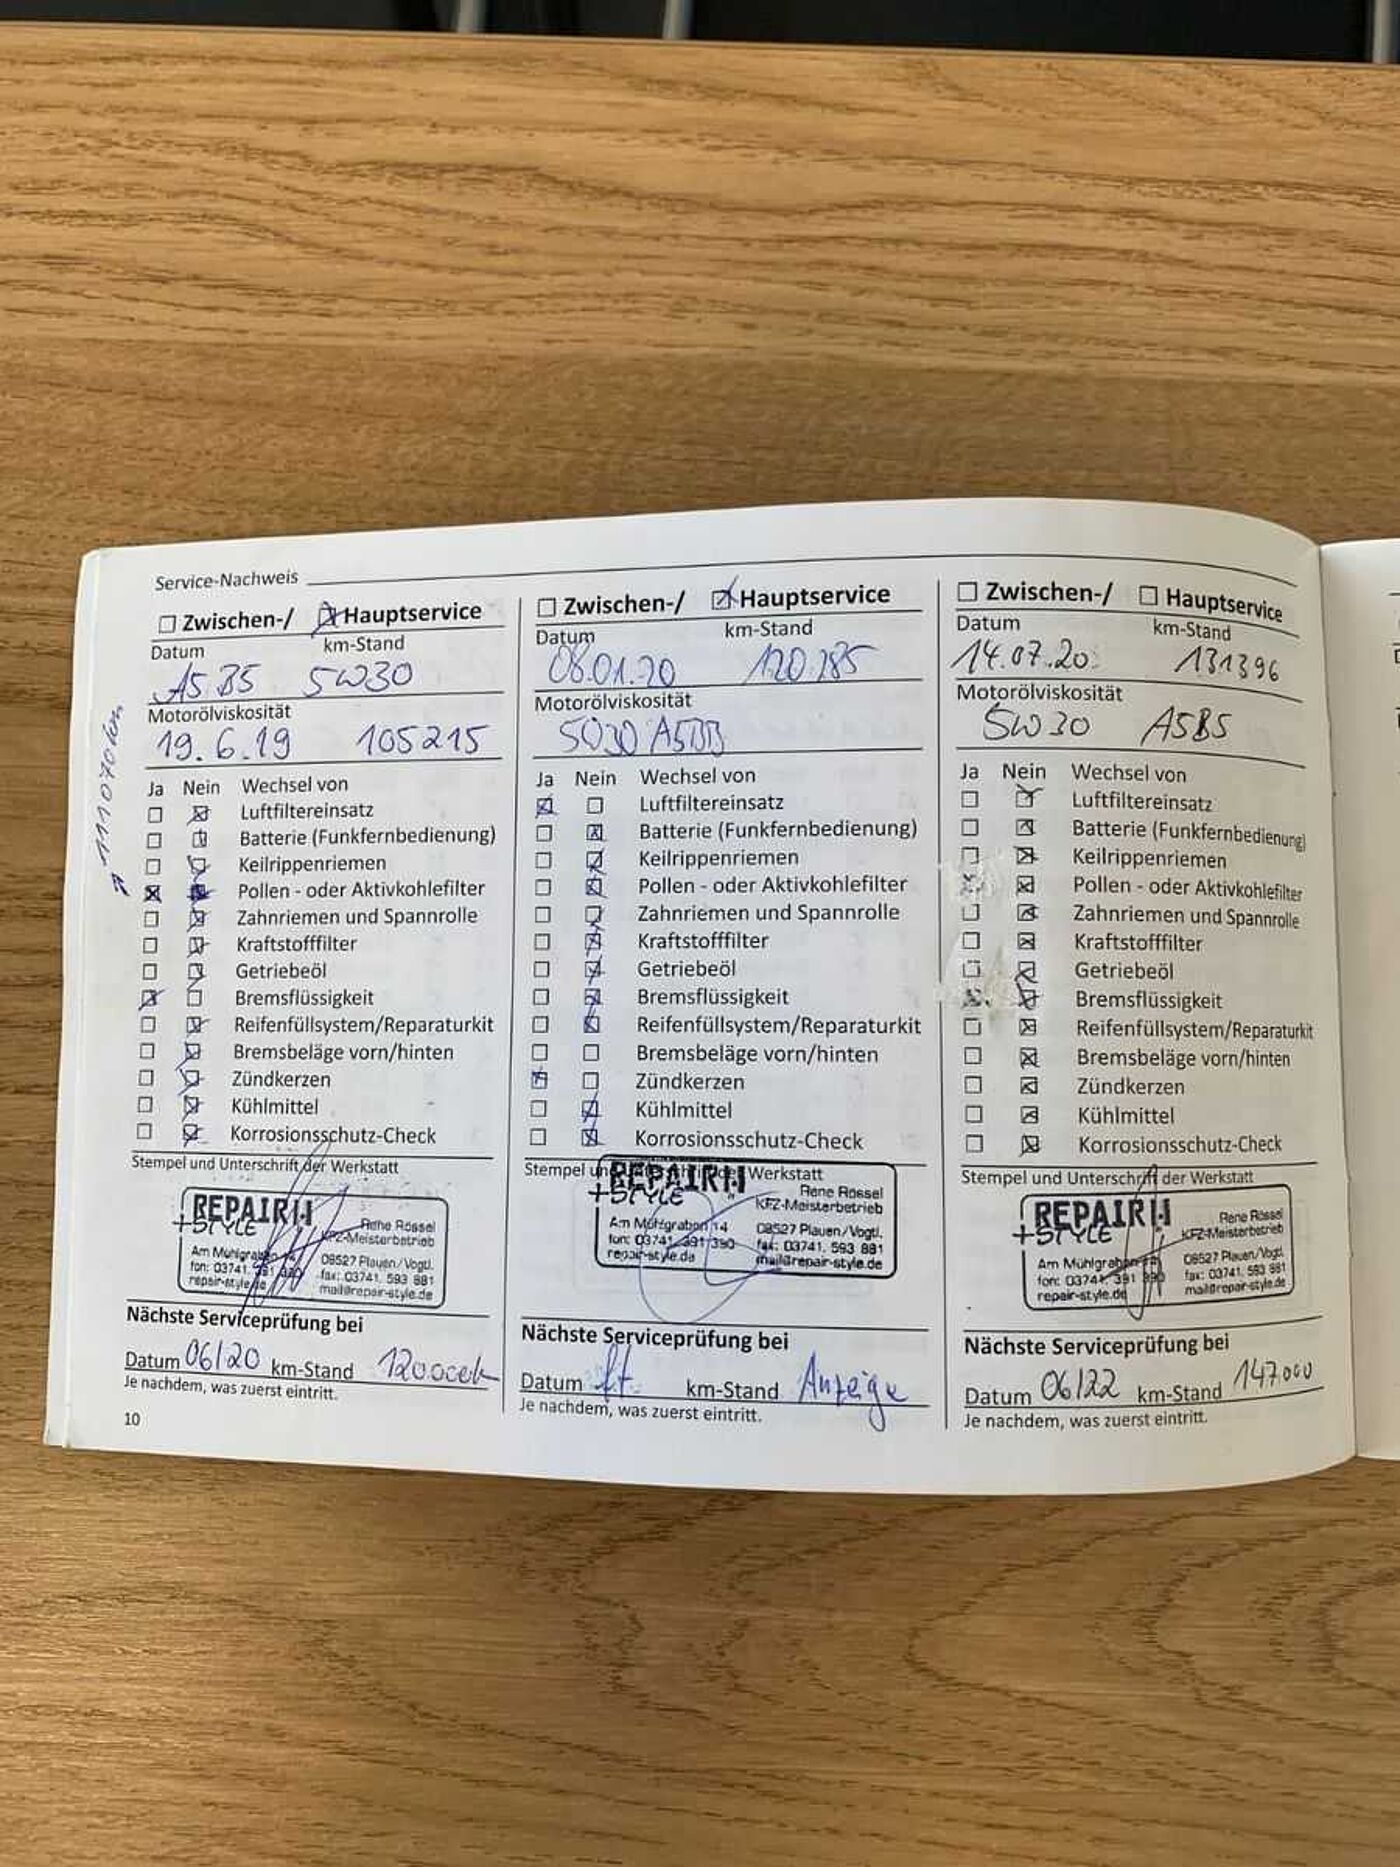 Service-Nachweis
Zwischen-/ Hauptservice
Datum km-Stand
A5 B5 5W30
Motorölviskosität
19.6.19 105215
111070 km
Ja Nein Wechsel von
Luftfiltereinsatz
Batterie (Funkfernbedienung)
Keilrippenriemen
Pollen - oder Aktivkohlefilter
Zahnriemen und Spannrolle
Kraftstofffilter
Getriebeöl
Bremsflüssigkeit
Reifenfüllsystem/Reparaturkit
Bremsbeläge vorn/hinten
Zündkerzen
Kühlmittel
Korrosionsschutz-Check
Stempel und Unterschrift der Werkstatt
REPAIR
+STYLE
Rene Rössel
KFZ-Meisterbetrieb
Am Mühlgraben 14
fon: 03741. 391 390
repair-style.de
08527 Plauen/Vogtl.
fax: 03741. 593 881
mail@repair-style.de
Nächste Serviceprüfung bei
Datum 06/20 km-Stand
Je nachdem, was zuerst eintritt.
10
Zwischen-/ Hauptservice
Datum km-Stand
08.01.20 120.285
Motorölviskosität
Ja Nein Wechsel von
Luftfiltereinsatz
Batterie (Funkfernbedienung)
Keilrippenriemen
Pollen - oder Aktivkohlefilter
Zahnriemen und Spannrolle
Kraftstofffilter
Getriebeöl
Bremsflüssigkeit
Reifenfüllsystem/Reparaturkit
Bremsbeläge vorn/hinten
Zündkerzen
Kühlmittel
Korrosionsschutz-Check
Stempel und Unterschrift der Werkstatt
REPAIR
+STYLE
Rene Rössel
KFZ-Meisterbetrieb
Am Mühlgraben 14
fon: 03741. 391 390
repair-style.de
08527 Plauen/Vogtl.
fax: 03741. 593 881
mail@repair-style.de
Nächste Serviceprüfung bei
Datum lt. km-Stand Anzeige
Je nachdem, was zuerst eintritt.
Zwischen-/ Hauptservice
Datum km-Stand
14.07.20 131396
Motorölviskosität
5W30 A5B5
Ja Nein Wechsel von
Luftfiltereinsatz
Batterie (Funkfernbedienung)
Keilrippenriemen
Pollen - oder Aktivkohlefilter
Zahnriemen und Spannrolle
Kraftstofffilter
Getriebeöl
Bremsflüssigkeit
Reifenfüllsystem/Reparaturkit
Bremsbeläge vorn/hinten
Zündkerzen
Kühlmittel
Korrosionsschutz-Check
Stempel und Unterschrift der Werkstatt
REPAIR
+STYLE
Rene Rössel
KFZ-Meisterbetrieb
Am Mühlgraben 14
fon: 03741. 391 390
repair-style.de
08527 Plauen/Vogtl.
fax: 03741. 593 881
mail@repair-style.de
Nächste Serviceprüfung bei
Datum 06/22 km-Stand 147.000
Je nachdem, was zuerst eintritt.